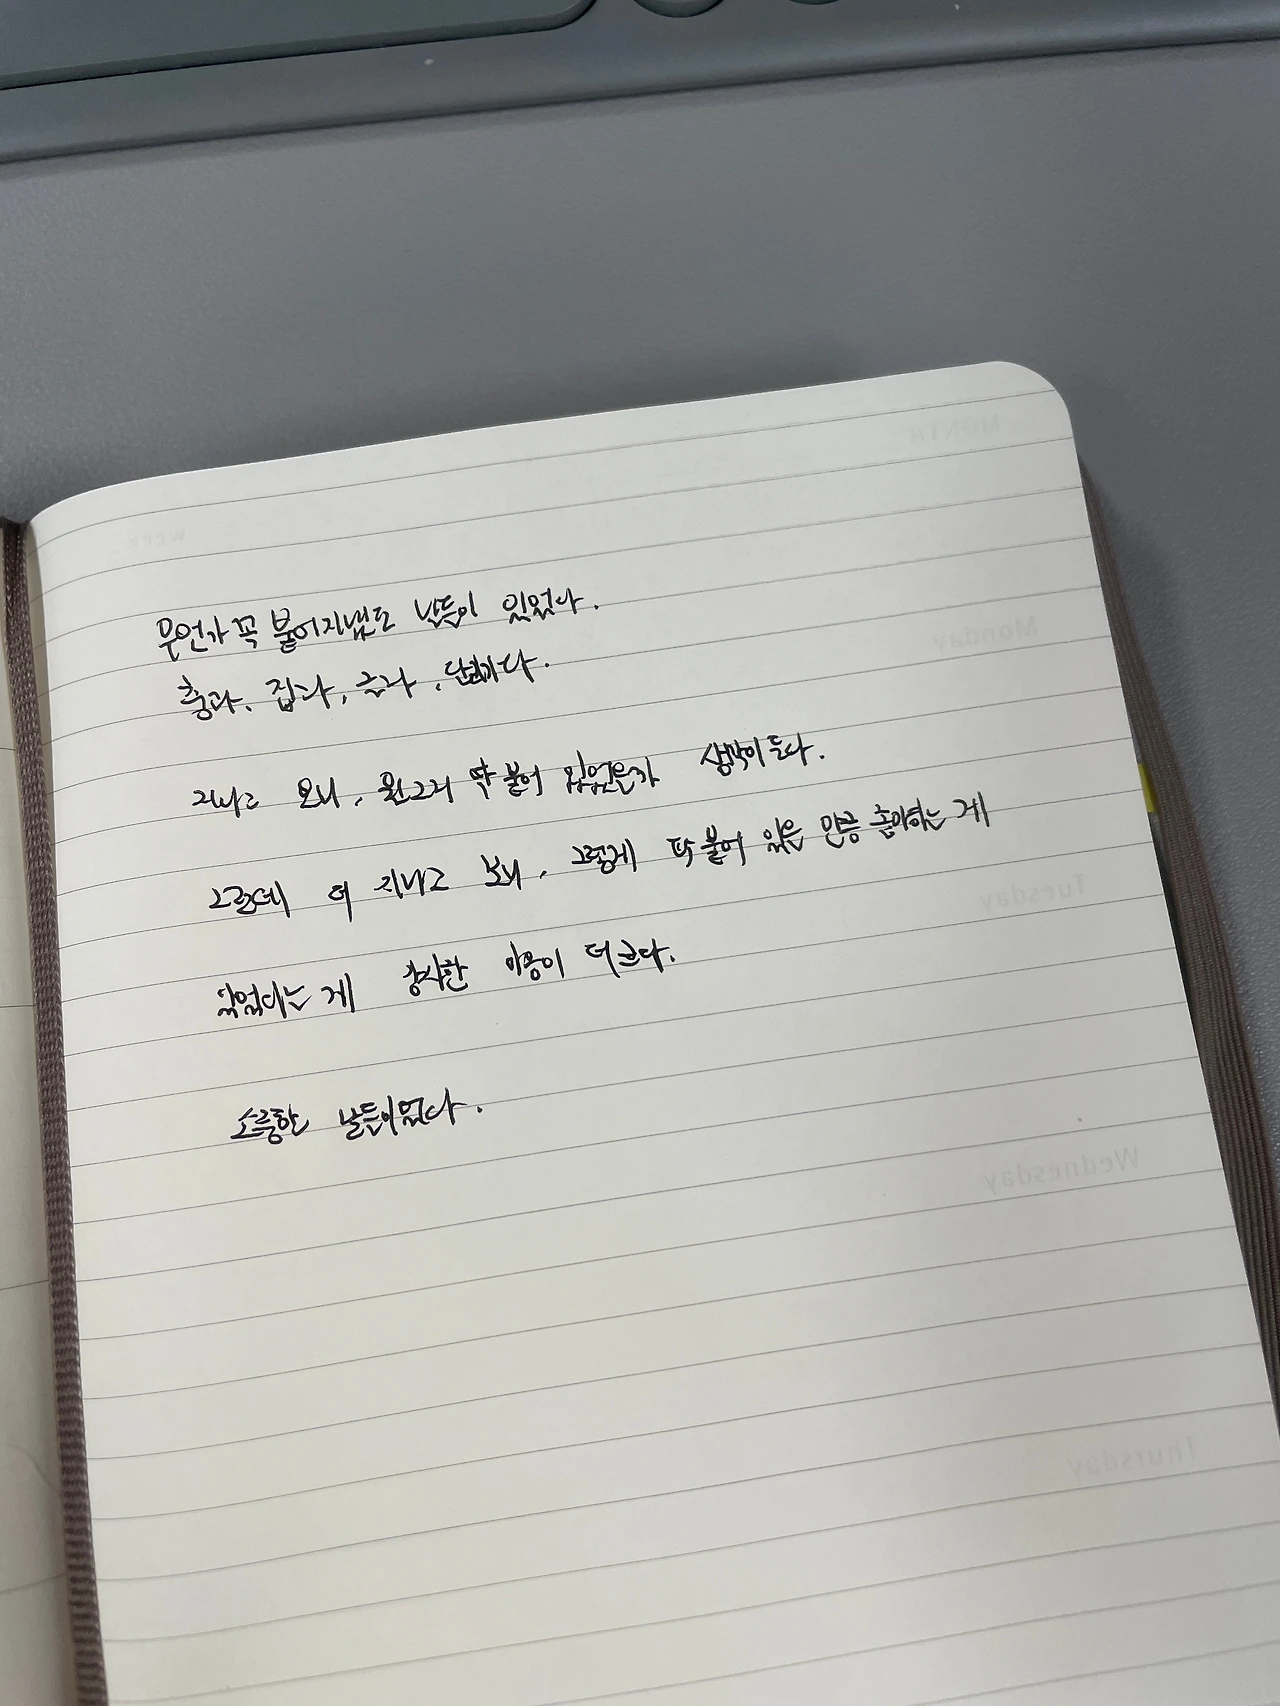 무언가 꼭 붙어지냈던 날들이 있었다.
춤과, 집과, 글과, 난리다.
지나고 보니, 뭘 그리 딱 붙어 있었는가 생각이 든다.
그런데 더 지나고 보니, 그렇게 딱 붙어 있을 만큼 좋아하는 게
있었다는 게 감사한 마음이 더 크다.
소중한 날들이었다.
MONTH
week
Monday
Tuesday
Wednesday
Thursday